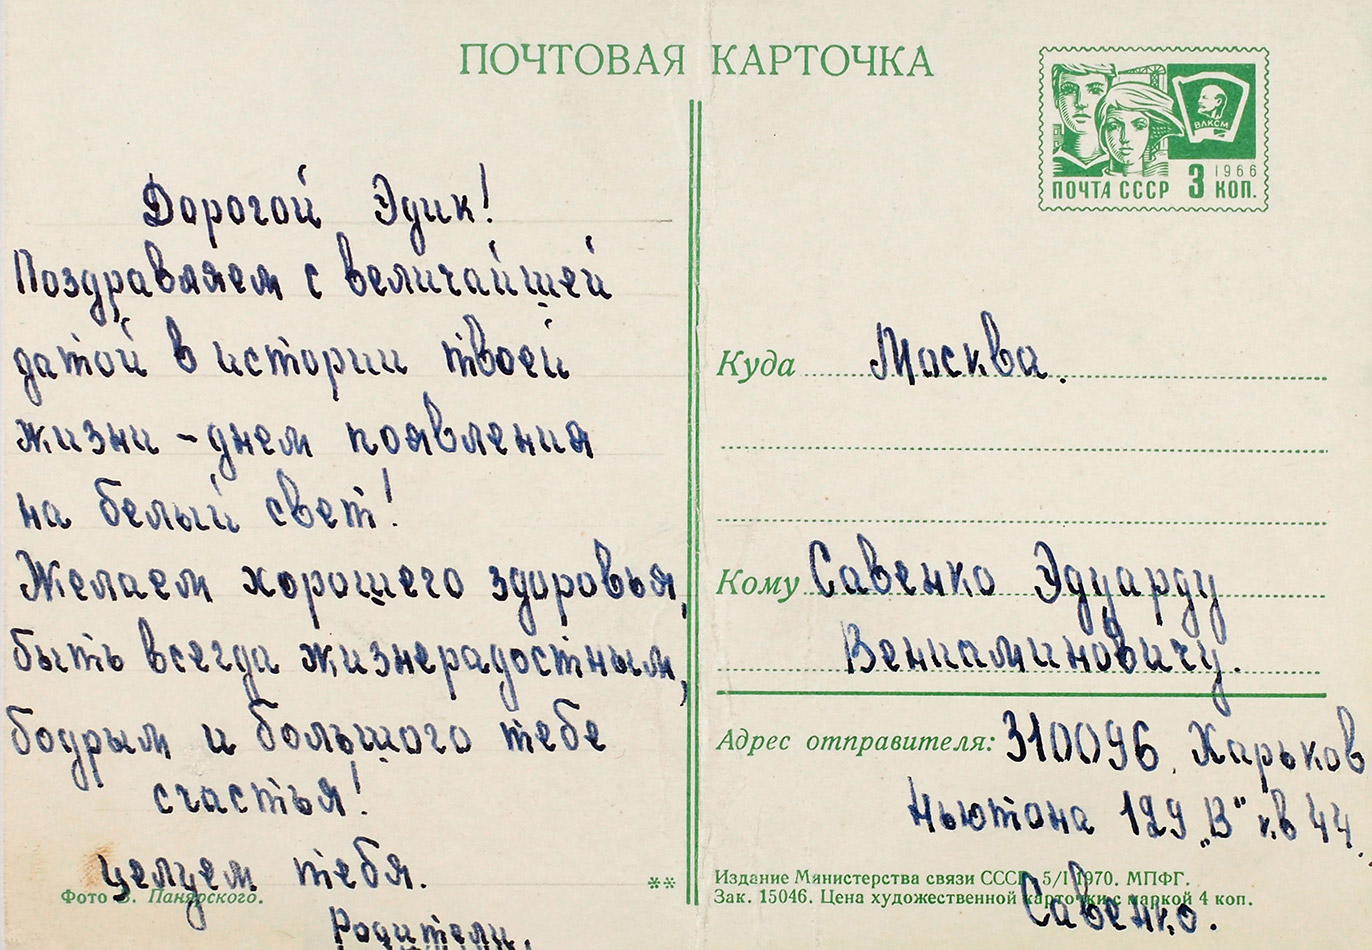 ПОЧТОВАЯ КАРТОЧКА
ВЛКСМ
1966
ПОЧТА СССР 3 КОП.
Дорогой Эдик!
Поздравляем с величайшей
датой в истории твоей
жизни - днем появления
на белый свет!
Желаем хорошего здоровья,
быть всегда жизнерадостным,
бодрым и большого тебе
счастья!
Целуем тебя.
Родители.
Фото В. Панярского.
**
Куда Москва.
Кому Савенко Эдуарду
Вениаминовичу.
Адрес отправителя: 310096, Харьков
Ньютона 129 „В" кв 44.
Савенко.
Издание Министерства связи СССР. 5/I 1970. МПФГ.
Зак. 15046. Цена художественной карточки с маркой 4 коп.